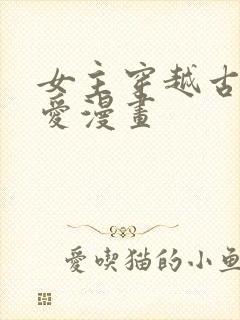 女主穿越古
愛漫畫
愛喫猫的小魚